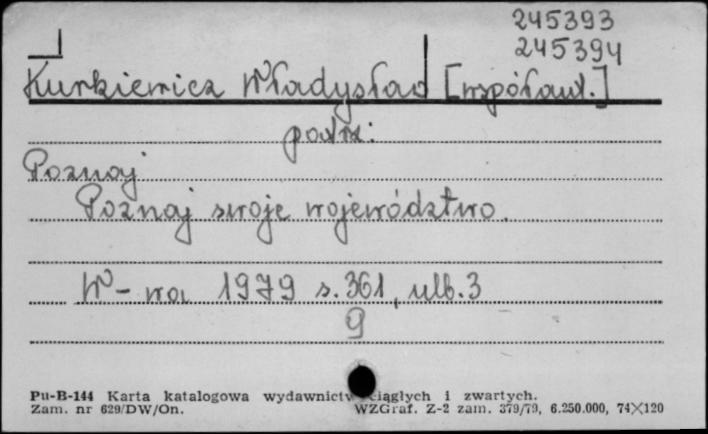 245393
245394
Kurkiewicz Władysław [współaut.]
patrz:
Poznaj
Poznaj swoje województwo.
W-wa 1979 s. 361, ulb. 3
9
Pu-B-144 Karta katalogowa wydawnictw ciągłych i zwartych.
Zam. nr 629/DW/On. WZGraf. Z-2 zam. 379/79, 6.250.000, 74×120